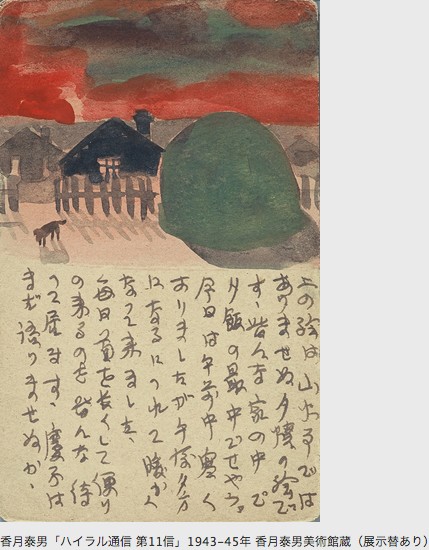 上の絵は山火事では
ありませぬ夕焼の絵で
す、皆んな家の中で
夕飯の最中でせう。
今日は午前中寒く
ありましたが午後夕方
になるにつれて暖かく
なつて来ました、
毎日首を長くして便り
の来るのを皆んな待
つて居ます、慶子は
まだ語りませぬか、
香月泰男「ハイラル通信 第11信」1943−45年 香月泰男美術館蔵（展示替あり）